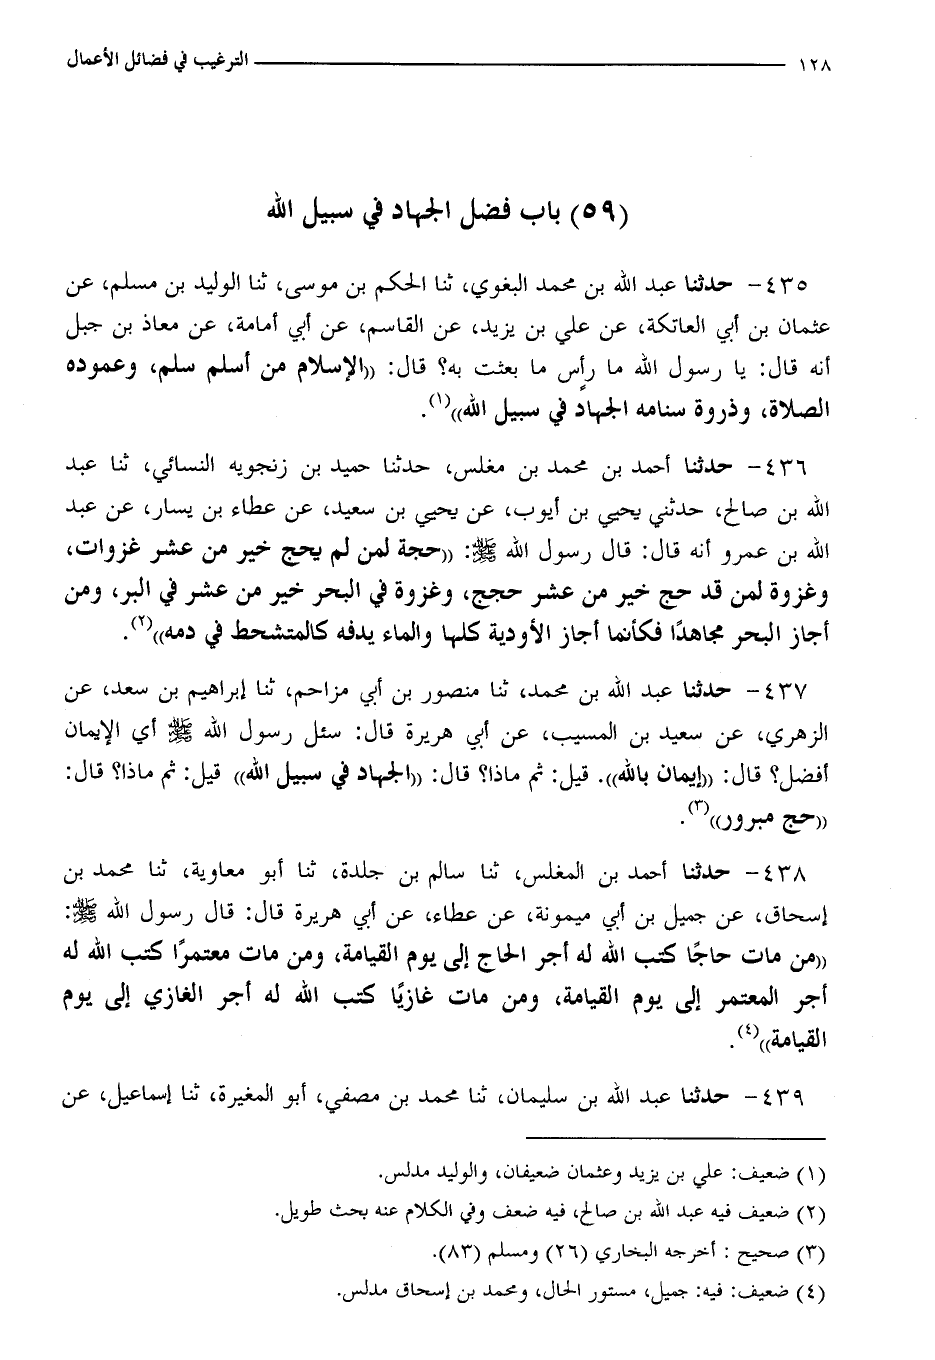 ١٢٨ الترغيب في فضائل الأعمال
(٥٩) باب فضل الجهاد في سبيل الله
٤٣٥- حدثنا عبد الله بن محمد البغوي، ثنا الحكم بن موسى، ثنا الوليد بن مسلم، عن
عثمان بن أبي العاتكة، عن علي بن يزيد، عن القاسم، عن أبي أمامة، عن معاذ بن جبل
أنه قال: يا رسول الله ما رأس ما بعثت به؟ قال: ((الإسلام من أسلم سلم، وعموده
الصلاة، وذروة سنامه الجهاد في سبيل الله))(١).
٤٣٦- حدثنا أحمد بن محمد بن مغلس، حدثنا حميد بن زنجويه النسائي، ثنا عبد
الله بن صالح، حدثني يحيي بن أيوب، عن يحيي بن سعيد، عن عطاء بن يسار، عن عبد
الله بن عمرو أنه قال: قال رسول الله ﷺ: ((حجة لمن لم يحج خير من عشر غزوات،
وغزوة لمن قد حج خير من عشر حجج، وغزوة في البحر خير من عشر في البر، ومن
أجاز البحر مجاهدًا فكأنما أجاز الأودية كلها والماء يدفه كالمتشحط في دمه))(٢).
٤٣٧- حدثنا عبد الله بن محمد، ثنا منصور بن أبي مزاحم، ثنا إبراهيم بن سعد، عن
الزهري، عن سعيد بن المسيب، عن أبي هريرة قال: سئل رسول الله ﷺ أي الإيمان
أفضل؟ قال: ((إيمان بالله)). قيل: ثم ماذا؟ قال: ((الجهاد في سبيل الله)) قيل: ثم ماذا؟ قال:
((حج مبرور))(٣).
٤٣٨- حدثنا أحمد بن المغلس، ثنا سالم بن جلدة، ثنا أبو معاوية، ثنا محمد بن
إسحاق، عن جميل بن أبي ميمونة، عن عطاء، عن أبي هريرة قال: قال رسول الله ﷺ:
((من مات حاجًا كتب الله له أجر الحاج إلى يوم القيامة، ومن مات معتمرًا كتب الله له
أجر المعتمر إلى يوم القيامة، ومن مات غازيًا كتب الله له أجر الغازي إلى يوم
القيامة))(٤).
٤٣٩- حدثنا عبد الله بن سليمان، ثنا محمد بن مصفي، أبو المغيرة، ثنا إسماعيل، عن
(١) ضعيف: علي بن يزيد وعثمان ضعيفان، والوليد مدلس.
(٢) ضعيف فيه عبد الله بن صالح، فيه ضعف وفي الكلام عنه بحث طويل.
(٣) صحيح : أخرجه البخاري (٢٦) ومسلم (٨٣).
(٤) ضعيف: فيه: جميل، مستور الحال، ومحمد بن إسحاق مدلس.